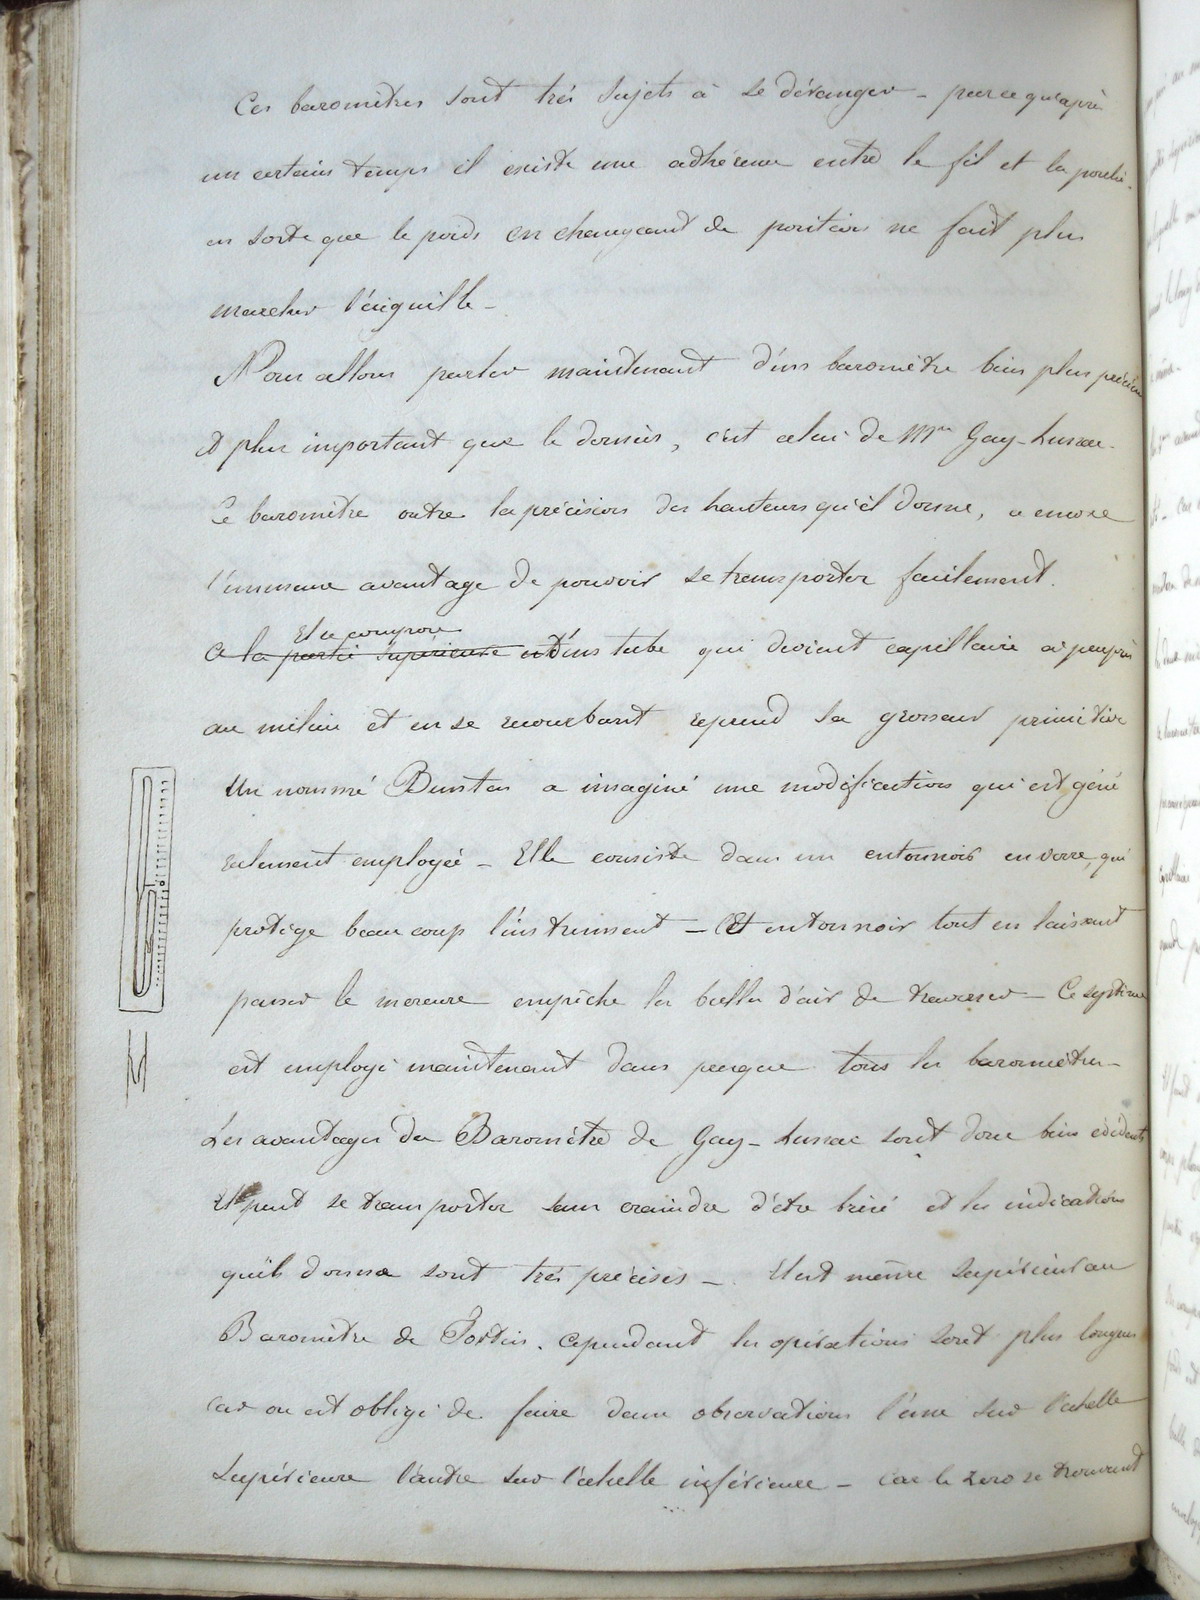 Ces baromètres sont très sujets à se déranger – parce qu'après
un certains temps il existe une adhérence entre le fil et la poulie.
en sorte que le poids en changeant de position ne fait plus
marcher l'aiguille –
Nous allons parler maintenant d'un baromètre bien plus précieux
et plus important que le dernier, c'est celui de Mr Gay-Lussac.
Ce baromètre outre la précision des hauteurs qu'il donne, a encore
l'immense avantage de pouvoir se transporter facilement.
Il se compose
A la partie supérieure et d'un tube qui devient capillaire à peu près
au milieu et en se recourbant reprend sa grosseur primitive
Un nommé Bunten a imaginé une modification qui est géné
ralement employée – Elle consiste dans un entonnoir en verre, qui
protège beaucoup l'instrument – Cet entonnoir tout en laissant
passer le mercure empêche la bulle d'air de traverser – Ce système
est employé maintenant dans presque tous les baromètres –
Les avantages du Baromètre de Gay-Lussac sont donc bien évidents
Il peut se transporter sans craindre d'être brisé et les indications
qu'ils donne sont très précises –. Il est même supérieur au
Baromètre de Fortin. Cependant les opérations sont plus longues
car on est obligé de faire deux observations l'une sur l'échelle
supérieure l'autre sur l'échelle inférieure – car le zéro se trouvant